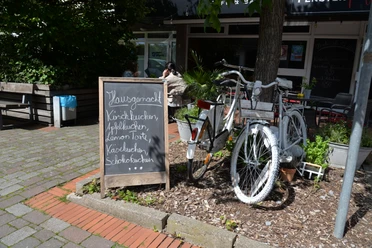 Hausgemacht
Kirschkuchen
Apfelkuchen
Lemon Tarte
Käsekuchen
Schokokuchen